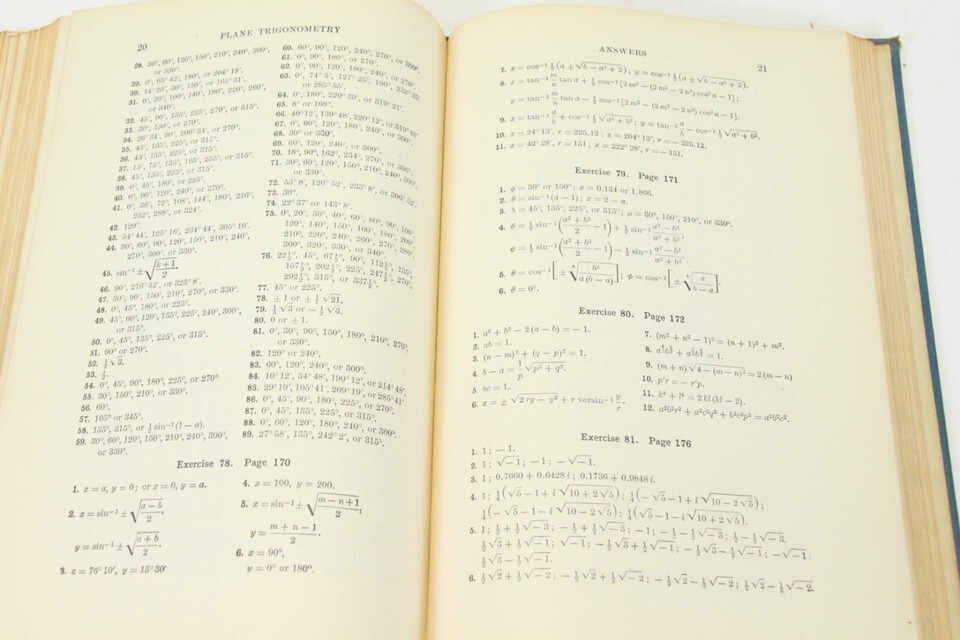 20
PLANE TRIGONOMETRY
28. 30°, 60°, 120°, 150°, 210°, 240°, 300°,
or 330°.
29. 0°, 65° 42', 180°, or 204° 18'.
30. 14° 29', 30°, 150°, or 165° 31'.
31. 0°, 20°, 100°, 140°, 180°, 220°, 260°,
or 340°.
32. 45°, 90°, 135°, 225°, 270°, or 315°.
33. 30°, 150°, or 270°.
34. 26° 34', 90°, 206° 34', or 270°.
35. 45°, 135°, 225°, or 315°.
36. 45°, 135°, 225°, or 315°.
37. 15°, 75°, 135°, 195°, 255°, or 315°.
38. 45°, 135°, 225°, or 315°.
39. 0°, 45°, 180°, or 225°.
40. 0°, 90°, 120°, 240°, or 270°.
41. 0°, 36°, 72°, 108°, 144°, 180°, 216°,
252°, 288°, or 324°.
42. 120°.
43. 54° 44', 125° 16', 234° 44', 305° 16'.
44. 30°, 60°, 90°, 120°, 150°, 210°, 240°,
270°, 300°, or 330°.
45. sin⁻¹ ± √
46. 90°, 216° 52', or 323° 8'.
47. 30°, 90°, 150°, 210°, 270°, or 330°.
48. 0°, 45°, 180°, or 225°.
49. 45°, 60°, 120°, 135°, 225°, 240°, 300°,
or 315°.
50. 0°, 45°, 135°, 225°, or 315°.
51. 90° or 270°.
52. ½√3.
53. ½.
54. 0°, 45°, 90°, 180°, 225°, or 270°
55. 30°, 150°, 210°, or 330°.
56. 60°.
57. 105° or 345°.
58. 135°, 315°, or ½ sin⁻¹(1 − a).
59. 30°, 60°, 120°, 150°, 210°, 240°, 300°,
or 330°.
60. 60°, 90°, 120°, 240°, 270°, or 300°.
61. 0°, 90°, 180°, or 270°.
62. 0°, 90°, 120°, 180°, 240°, or 270°.
63. 0°, 74° 5', 127° 25', 180°, 232° 35'
or 285° 55'.
64. 0°, 180°, 220° 39', or 319° 21'.
65. 8° or 168°.
66. 40° 12', 139° 48', 220° 12', or 319° 48'
67. 0°, 60°, 120°, 180°, 240°, or 300°.
68. 30° or 330°.
69. 60°, 120°, 240°, or 300°.
70. 18°, 90°, 162°, 234°, 270°, or 306°.
71. 30°, 60°, 120°, 150°, 210°, 240°, 300°
or 330°.
72. 53° 8', 126° 52', 233° 8', or 306° 52'.
73. 30°.
74. 22° 37' or 143° 8'.
75. 0°, 20°, 30°, 40°, 60°, 80°, 90°, 100°
120°, 140°, 150°, 160°, 180°, 200°
210°, 220°, 240°, 260°, 270°, 280°
300°, 320°, 330°, or 340°.
76. 22½°, 45°, 67½°, 90°, 112½°, 135°,
157½°, 202½°, 225°, 247½°, 270°,
292½°, 315°, or 337½°.
77. 45° or 225°.
78. ± 1 or ±
79. ½√3 or − ½√3.
80. 0 or ± 1.
81. 0°, 30°, 90°, 150°, 180°, 210°, 270°,
or 330°.
82. 120° or 240°.
83. 60°, 120°, 240°, or 300°.
84. 10° 12', 34° 48', 190° 12', or 214° 48'.
85. 29° 19', 105° 41', 209° 19', or 285° 41'
86. 0°, 45°, 90°, 180°, 225°, or 270°.
87. 0°, 45°, 135°, 225°, or 315°.
88. 0°, 60°, 120°, 180°, 240°, or 300°.
89. 27° 58', 135°, 242° 2', or 315°.
Exercise 78. Page 170
1. x = a, y = 0; or x = 0, y = a.
2. x = sin⁻¹ ± √((a − b)/2),
y = sin⁻¹ ± √((a + b)/2).
3. x = 76° 10', y = 15° 30'
4. x = 100, y = 200.
5. x = sin⁻¹ ± √((m − n + 1)/2),
y = (m + n − 1)/2.
6. x = 90°,
y = 0° or 180°.
ANSWERS
21
7. x = cos⁻¹ ½(a ± √(b − a² + 2)); y = cos⁻¹ ½(a ± √(b − a² + 2).
8. x = tan⁻¹ m/n tan a + ½ cos⁻¹ [2 m² − (2 m² − 2 n²) cos² a − 1];
y = tan⁻¹ m/n tan a − ½ cos⁻¹ [2 m² − (2 m² − 2 n²) cos² a − 1].
9. x = tan⁻¹ a/b + cos⁻¹ ½ √(a² + b²); y = tan⁻¹ a/b − cos⁻¹ ½ √(a² + b²).
10. x = 24° 13', r = 225.12; x = 204° 13', r = − 225.12.
11. x = 42° 28', r = 151; x = 222° 28', r = − 151.
Exercise 79. Page 171
1. φ = 30° or 150°; x = 0.134 or 1.866.
2. θ = sin⁻¹(a − 1); x = 2 − a.
3. λ = 45°, 135°, 225°, or 315°; μ = 30°, 150°, 210°, or 330°.
4. θ = ½ sin⁻¹((a² + b²)/2 − 1) + ½ sin⁻¹ (a² − b²)/(a² + b²);
φ = ½ sin⁻¹((a² + b²)/2 − 1) − ½ sin⁻¹ (a² − b²)/(a² + b²).
5. θ = cos⁻¹[± ∜(b²/(a(b − a)))]; φ = cos⁻¹[± ∜(a/(b − a))].
6. θ = 0°.
Exercise 80. Page 172
1. a² + b² − 2 (a − b) = − 1.
2. ab = 1.
3. (n − m)² + (q − p)² = 1.
4. b − a = 1/p √(p² + q²).
5. bc = 1.
6. x = ± √(2 ry − y²) + r versin⁻¹ y/r.
7. (m² + n² − 1)² = (n + 1)² + m².
8.
9. (m + n) √(4 − (m − n)²) = 2 (m − n)
10. p'r = − r'p.
11. k⁴ + l⁴ = 2 kl (kl − 2).
12. a²b²r² + a²c²q² + b²c²p² = a²b²c².
Exercise 81. Page 176
1. 1; − 1.
2. 1; √−1; − 1; − √−1.
3. 1; 0.7660 + 0.6428 i; 0.1736 + 0.9848 i.
4. 1; ¼(√5 − 1 + i √(10 + 2√5)); ¼(− √5 − 1 + i √(10 − 2√5));
¼(− √5 − 1 − i √(10 − 2√5)); ¼(√5 − 1 − i √(10 + 2√5)).
5. 1; ½ + ½√−3; − ½ + ½√−3; − 1; − ½ − ½√−3; ½ − ½√−3.
½√3 + ½√−1; √−1; − ½√3 + ½√−1; − ½√3 − ½√−1; − √−1;
½√3 − ½√−1.
6. ½√2 + ½√−2; − ½√2 + ½√−2; − ½√2 − ½√−2; ½√2 − ½√−2.